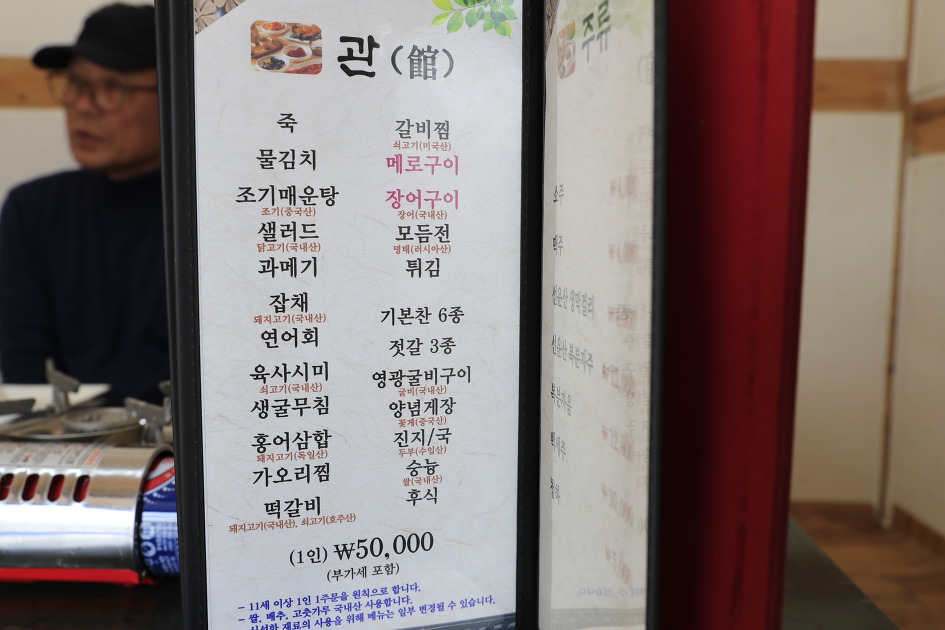 관(館)
죽
물김치
조기매운탕
조기(중국산)
샐러드
닭고기(국내산)
과메기
잡채
돼지고기(국내산)
연어회
육사시미
쇠고기(국내산)
생굴무침
홍어삼합
돼지고기(독일산)
가오리찜
떡갈비
돼지고기(국내산), 쇠고기(호주산)
갈비찜
쇠고기(미국산)
메로구이
장어구이
장어(국내산)
모듬전
명태(러시아산)
튀김
기본찬 6종
젓갈 3종
영광굴비구이
굴비(국내산)
양념게장
꽃게(중국산)
진지/국
두부(수입산)
숭늉
쌀(국내산)
후식
(1인) ₩50,000
(부가세 포함)
- 11세 이상 1인 1주문을 원칙으로 합니다.
- 쌀, 배추, 고춧가루 국내산 사용합니다.
- 신선한 재료의 사용을 위해 메뉴는 일부 변경될 수 있습니다.
주류
소주
맥주
선운산 생막걸리
선운산 복분자주